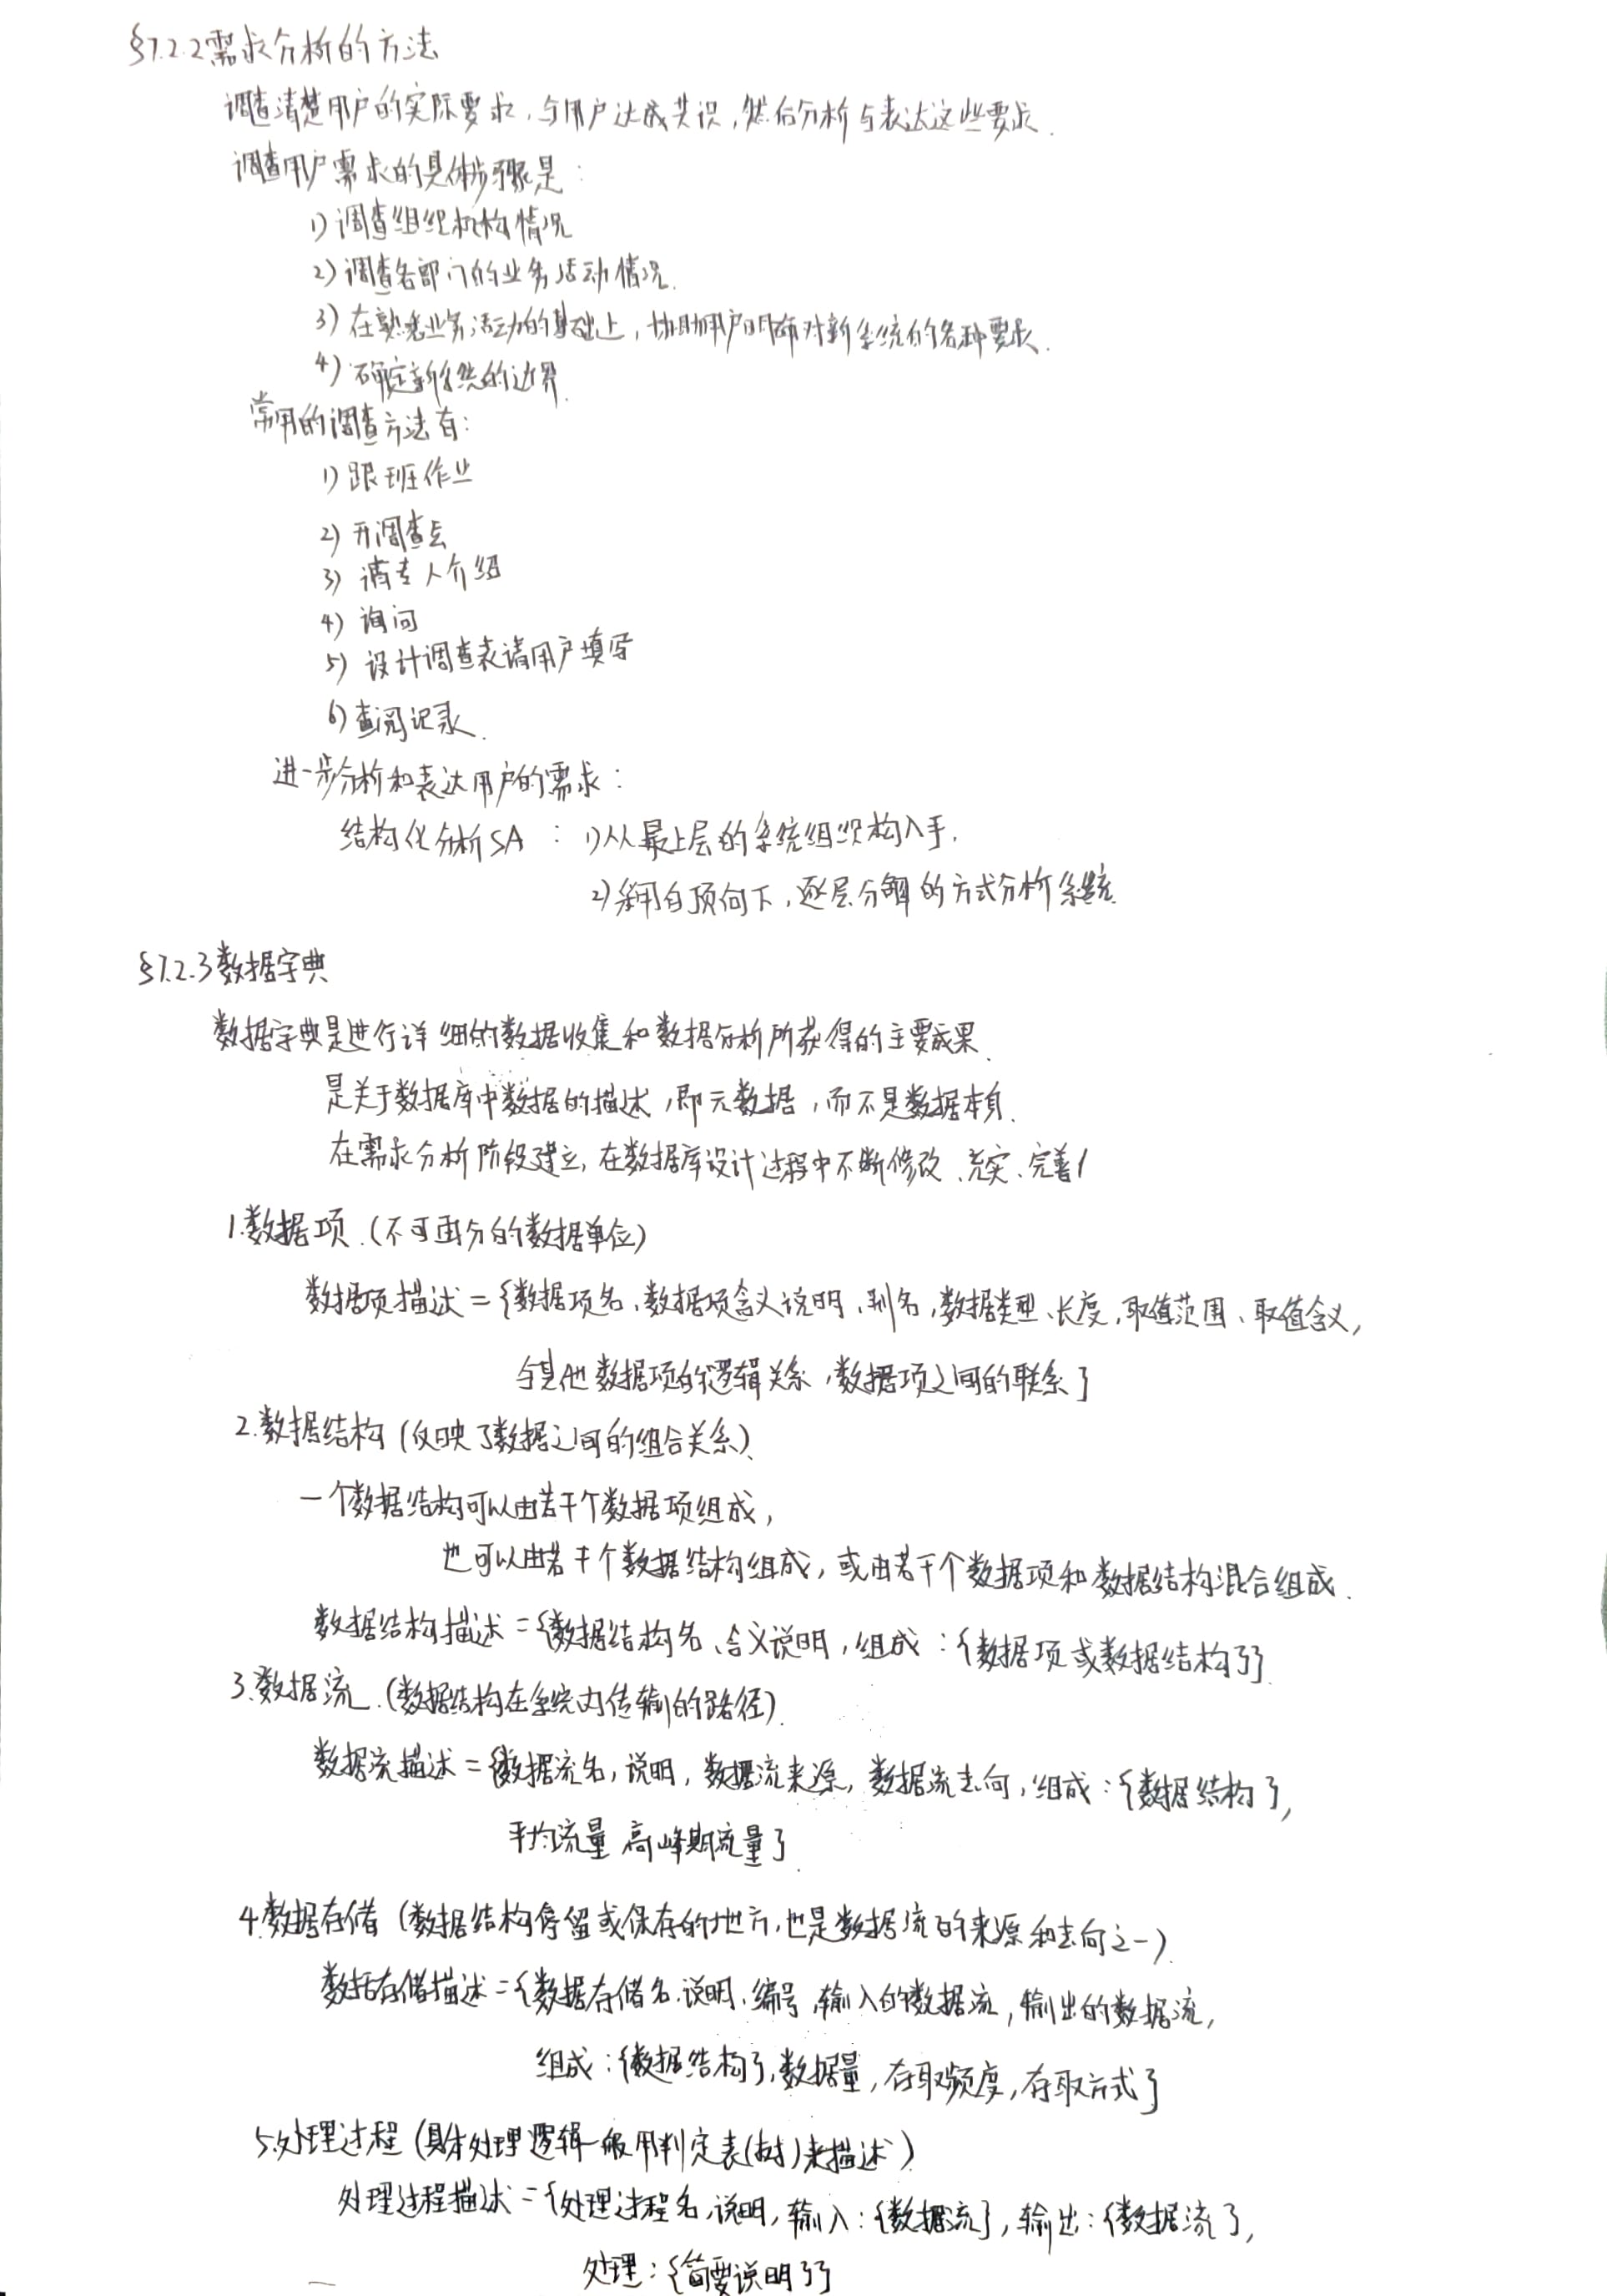 §7.2.2需求分析的方法
调查清楚用户的实际要求,与用户达成共识,然后分析与表达这些要求.
调查用户需求的具体步骤是:
1)调查组织机构情况
2)调查各部门的业务活动情况.
3)在熟悉业务活动的基础上,协助用户明确对新系统的各种要求.
4)确定新系统的边界.
常用的调查方法有:
1)跟班作业
2)开调查会
3)请专人介绍
4)询问
5)设计调查表请用户填写
6)查阅记录.
进一步分析和表达用户的需求:
结构化分析SA : 1)从最上层的系统组织构入手.
2)采用自顶向下,逐层分解的方式分析系统.
§7.2.3数据字典
数据字典是进行详细的数据收集和数据分析所获得的主要成果.
是关于数据库中数据的描述,即元数据,而不是数据本身.
在需求分析阶段建立,在数据库设计过程中不断修改、充实、完善
1.数据项.(不可再分的数据单位)
数据项描述={数据项名、数据项含义说明、别名,数据类型、长度,取值范围、取值含义,
与其他数据项的逻辑关系,数据项之间的联系}
2.数据结构(反映了数据之间的组合关系).
一个数据结构可以由若干个数据项组成,
也可以由若干个数据结构组成,或由若干个数据项和数据结构混合组成.
数据结构描述={数据结构名、含义说明,组成:{数据项或数据结构}}.
3.数据流.(数据结构在系统内传输的路径).
数据流描述={数据流名,说明,数据流来源,数据流去向,组成:{数据结构},
平均流量 高峰期流量}.
4.数据存储(数据结构停留或保存的地方,也是数据流的来源和去向之一).
数据存储描述={数据存储名.说明.编号,输入的数据流,输出的数据流,
组成:{数据结构},数据量,存取频度,存取方式}
5.处理过程(具体处理逻辑一般用判定表(树)来描述)
处理过程描述={处理过程名,说明,输入:{数据流},输出:{数据流},
处理:{简要说明}}